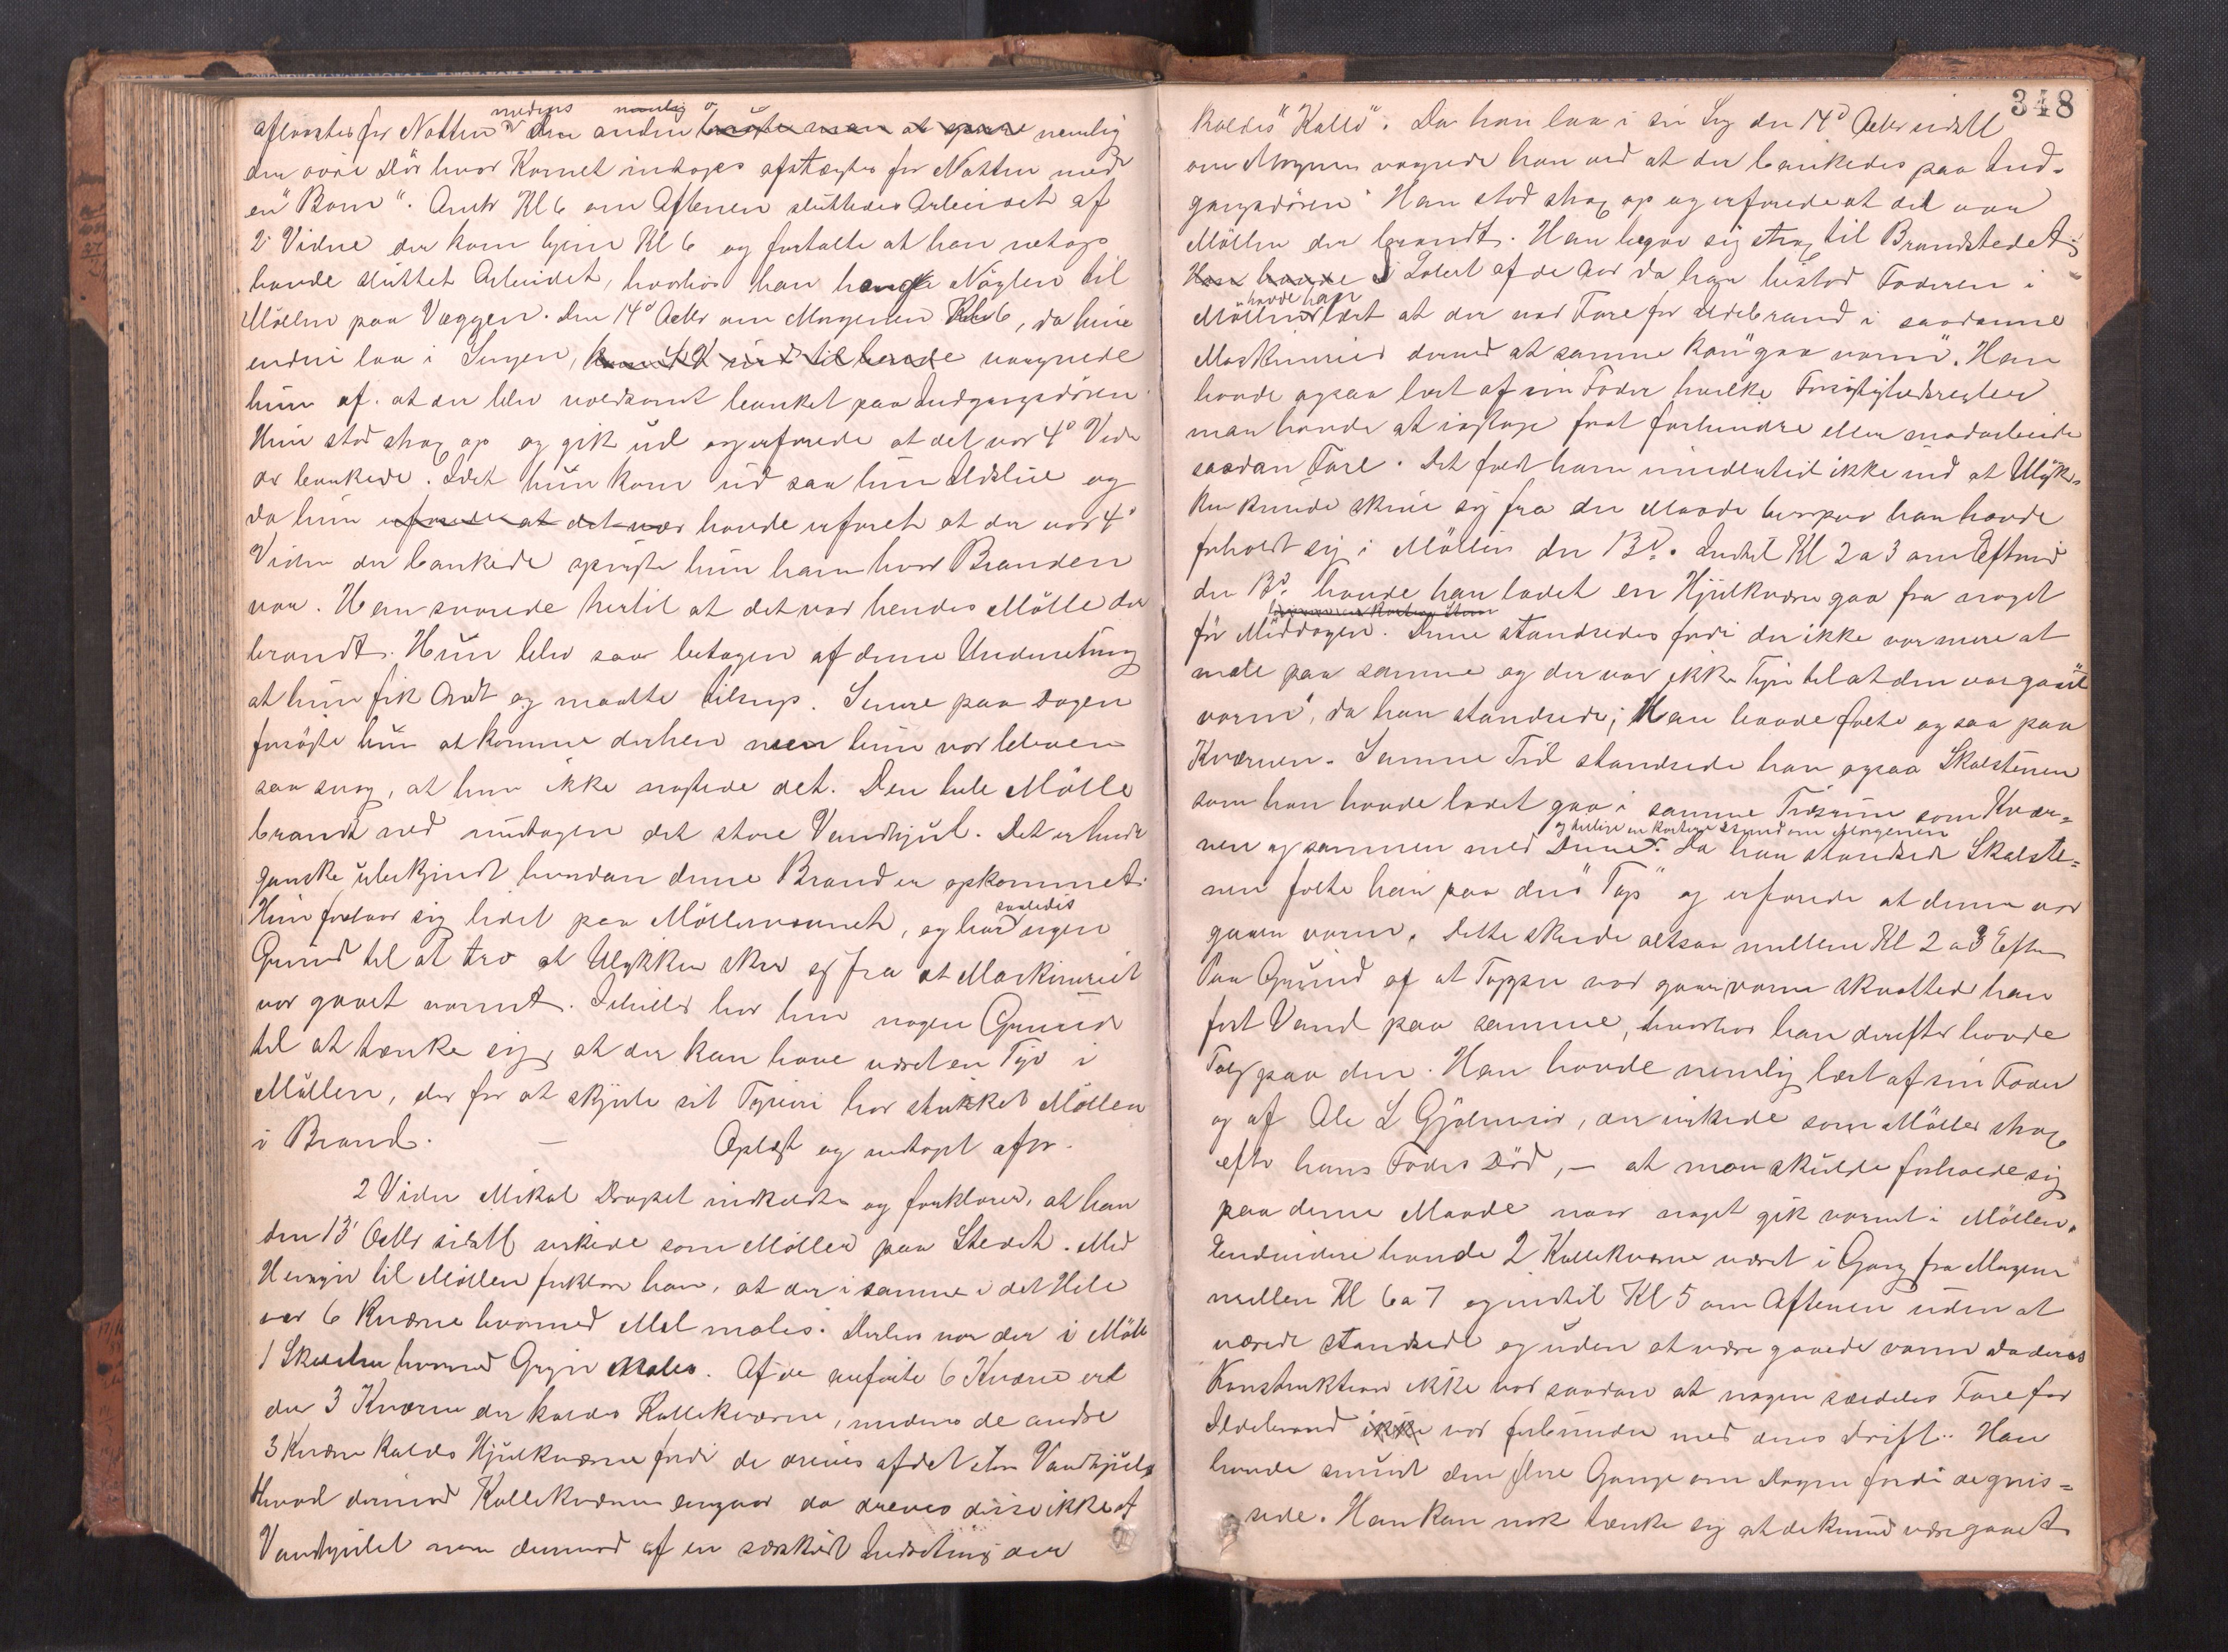 aflaastes for Natten medens den anden brugte man at spærre nemlig
den øvre Dør hvor Kornet indtoges afstængtes for Natten med
en "Bom". Omtr Kl 6 om Aftenen sluttedes Arbeidet af
2 Vidne der kom hjem Kl 6 og fortalte at han netop
havde sluttet Arbeidet, hvorhos han hang Nøglen til
Møllen paa Væggen. Den 14de Octbr om Morgenen Kl 6, da hun
endnu laa i Sengen, vaagnede
hun af at der blev voldsomt banket paa Indgangsdøren.
Hun stod strax op og gik ud og erfarede at det var 4de Vidne
der bankede. Idet hun kom ud saa hun Ildslue og
da hun erfarede at det var havde erfaret at det var 4de
Vidne der bankede spurgte hun ham hvor Branden
var. Han svarede hertil at det var hendes Mølle der
brændte. Hun blev saa betagen af denne Underretning
at hun fik Ondt og maatte tilsengs. Senere paa Dagen
forsøgte hun at komme derhen men hun var bleven
saa svag, at hun ikke magtede det. Den hele Mølle
brændte ned undtagen det store Vandhjul. Det er hende
ganske ubekjendt hvordan denne Brand er opkommet.
Hun forstaar sig lidet paa Møllervæsenet, og har saaledes ingen
Grund til at tro at Ulykken skrev sig fra at Maskineriet
var gaaet varmt. Ihvertfald har hun nogen Grund
til at tænke sig, at der kan have været en Tyv i
Møllen, der for at skjule sit Tyveri har stukket Møllen
i Brand. — Oplæst og vedtaget aftr.
2 Vidne Mikal Dragset indkaldtes og forklarer, at han
den 13 Octbr sidstl virkede som Møller paa Stedet. Med
Hensyn til Møllen forklarer han, at der i samme i det Hele
var 6 Kværne hvormed Mel males. Derhos var der i Møllen
1 Skalsten hvormed Gryn males. Af de anførte 6 Kværne var
der 3 Kværne der kaldes Kallekværne, medens de andre
3 Kværne kaldes Hjulkværne fordi de drives af det store Vandhjul.
Hvad derimod Kallekværnene angaar da dreves disse ikke af
Vandhjulet men derimod af en særskilt Indretning der
348
kaldes "Kalle". Da han laa i sin Seng den 14de Octbr sidstl
om Morgenen vaagnede han ved at der bankedes paa Ind-
gangsdøren. Han stod strax op og erfarede at det var
Møllen der brændte. Han begav sig strax til Brandstedet.
Han havde I Løbet af de Aar da han bistod Faderen i
Møllen havde han lært at der var Fare for Ildebrand i saadanne
Maskinerier derved at samme kan "gaa varm". Han
havde ogsaa lært af sin Fader hvilke Forsigtighedsregler
man havde at iagttage for at forhindre eller modarbeide
saadan Fare. Det faldt ham imidlertid ikke ind at Ulyk-
ken kunde skrive sig fra den Maade hvorpaa han havde
forholdt sig i Møllen den 13de. Indtil Kl 2 a 3 om Eftmd
den 13de havde han ladet en Hjulkværn gaa fra noget
før Middagen. Denne standsedes fordi der ikke var mere at
male paa samme og der var ikke Tegn til at den var gaaet
varm, da han standsede; Han havde følt ogsaa paa
Kværnen. Samme Tid standsede han ogsaa Skalstenen
som han havde ladet gaa i samme Tidsrum som Kvær-
nen og sammen med Denne og tillige en kortere Stund om Morgenen. Da han standsede Skalste-
nen følte han paa dens "Tap" og erfarede at denne var
gaaen varm. Dette skede altsaa mellem Kl 2 a 3 Eftm
Paa Grund af at Tappen var gaaen varm skvættede han
først Vand paa samme, hvorhos han derefter havde
Talg paa den. Han havde nemlig lært af sin Fader
og af Ole L Gjølmesli, der virkede som Møller strax
efter hans Faders Død, — at man skulde forholde sig
paa denne Maade naar noget gik varmt i Møllen.
Endvidere havde 2 Kallekværne været i Gang fra Morgenen
mellem Kl 6 a 7 og indtil Kl 5 om Aftenen uden at
være standsede og uden at være gaaede varm da deres
Konstruktion ikke var saadan at nogen særdeles Fare for
Ildebrand ikke var forbunden med dens Drift. Han
havde smurt dem flere Gange om Dagen fordi de gnis-
sede. Han kan nok tænke sig at de kunde være gaaet